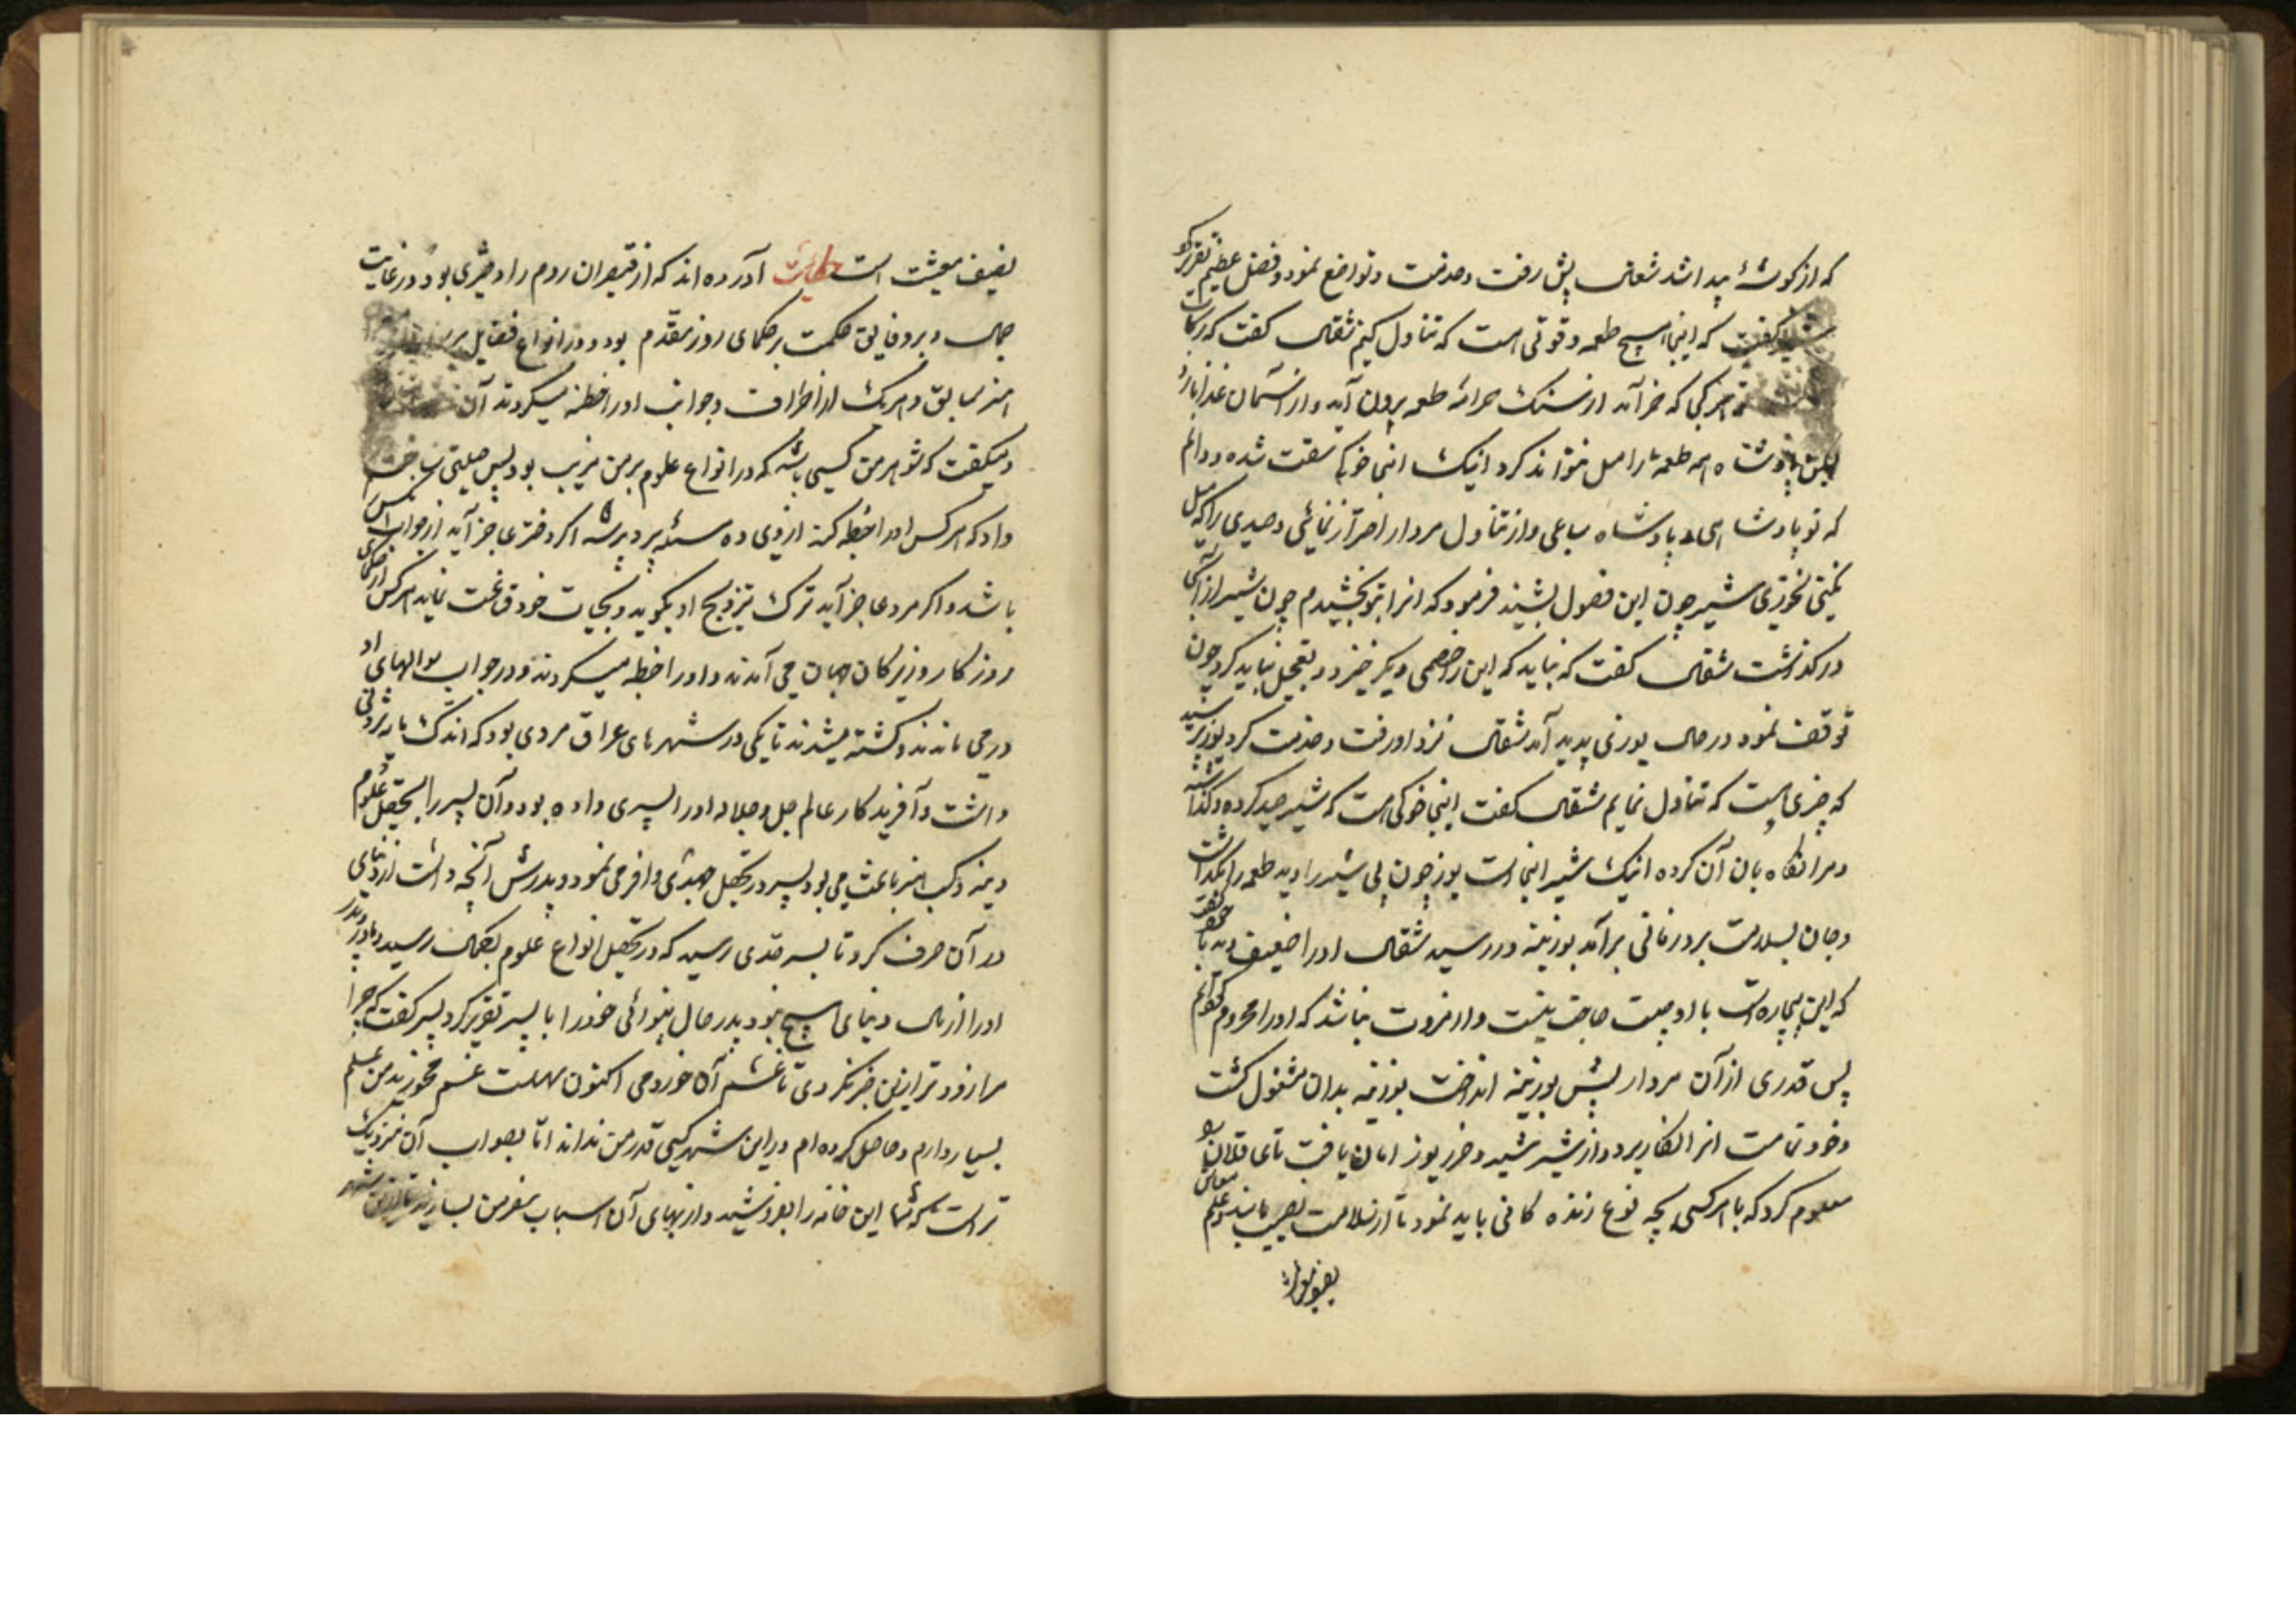 که از کوشهٔ پیدا شد شغال پیش رفت و خدمت و تواضع نمود و فصل عظیم تقریر کرد
شیر کفت که اینجا هیچ طعمه و قوتی هست که تناول کنیم شغال کفت که برکات
هر کجا که خرامد از سنک خرائه طعمه بیرون آید و از آسمان غذا بارد
لیکن پادشاه همه طعمه را میل نتواند کرد اینک اینجا خوکی سقت شده و دانم
که تو پادشاهی و پادشاه سباعی و از تناول مردار احتراز نمائی و صیدی را که میل
نکنی نخوری شیر چون این فصول بشنید فرمود که انرا بتو بخشیدم چون شیر از آنجا
درکذشت شغال کفت که نباید که این را خصمی دیکر خیزد و تعجیل نباید کرد چون
توقف نمود در حال یوزی پدید آمد شغال نزد او رفت و خدمت کرد یوز پرسید
که چیزی هست که تناول نمایم شغال کفت اینجا خوکی هست که شیر صید کرده و کذاشته
و مرا نکاه بان آن کرده اینک شیر اینجا است یوز چون پی شیر را دید طعمه را بکذاشت
و جان بسلامت برد زمانی برآمد بوزینه در رسید شغال او را ضعیف دید با خود کفت
که این بیچاره است با او حیلت حاجت نیست و از مروت نباشد که او را محروم کنم
پس قدری از آن مردار پیش بوزینه انداخت بوزینه بدان مشغول کشت
و خود تمامت انرا بکار برد و از شیر شیر و ضرر یوز امان یافت تا عاقلان را
معلوم کرد که با هر کسی بچه نوع زندکانی باید نمود تا از سلامت بنصیب مانند و علم معاش
نصیف معیشت است حکایت آورده اند که از قیصران روم را دختری بود در غایت
جمال و بر دقایق حکمت بر حکمای روز مقدم بود و در انواع فضایل بر
هنر سابق و هر یک از اطراف و جوانب او را خطبه میکردند آن
و میکفت که شوهر من کسی باشد که در انواع علوم بر من مزیت بود پس حیلتی ساخت
داد که هر کس او را خطبه کند از وی ده مسئله برپرسد اکر دختر عاجز آید از جواب
باشد و اکر مرد عاجز آید ترک تزویج او بکوید و بحیات خود قناعت نماید هر کس از حکمای
روزکار و زیرکان جهان می آمدند و او را خطبه میکردند و در جواب سوالهای او
درمی ماندند و کشته میشدند تا یکی در شهرهای عراق مردی بود که اندک مایه ثروتی
داشت و آفریدکار عالم جل جلاله او را پسری داده بود و آن پسر را بتحصیل علوم
دینه و کسب هنر باعث می بود پسر در تحصیل جهدی وافر می نمود و پدرش آنچه داشت از دنیای
در آن صرف کرد تا پسر بحدی رسید که در تحصیل انواع علوم بکمال رسید و پدر
او را از مال دنیای هیچ نبود پدر حال بینوائی خود را با پسر تقریر کرد پسر کفت که چرا
مرا زودتر ازین خبر نکردی تا غم آن خوردمی اکنون سهلست غم مخورید من علم
بسیار دارم و حاصل کرده ام و در این شهر کسی قدر من نداند اما بصواب آن نزدیک
تر است که شما این خانه را بفروشید و از بهای آن اسباب سفر من بسازید تا